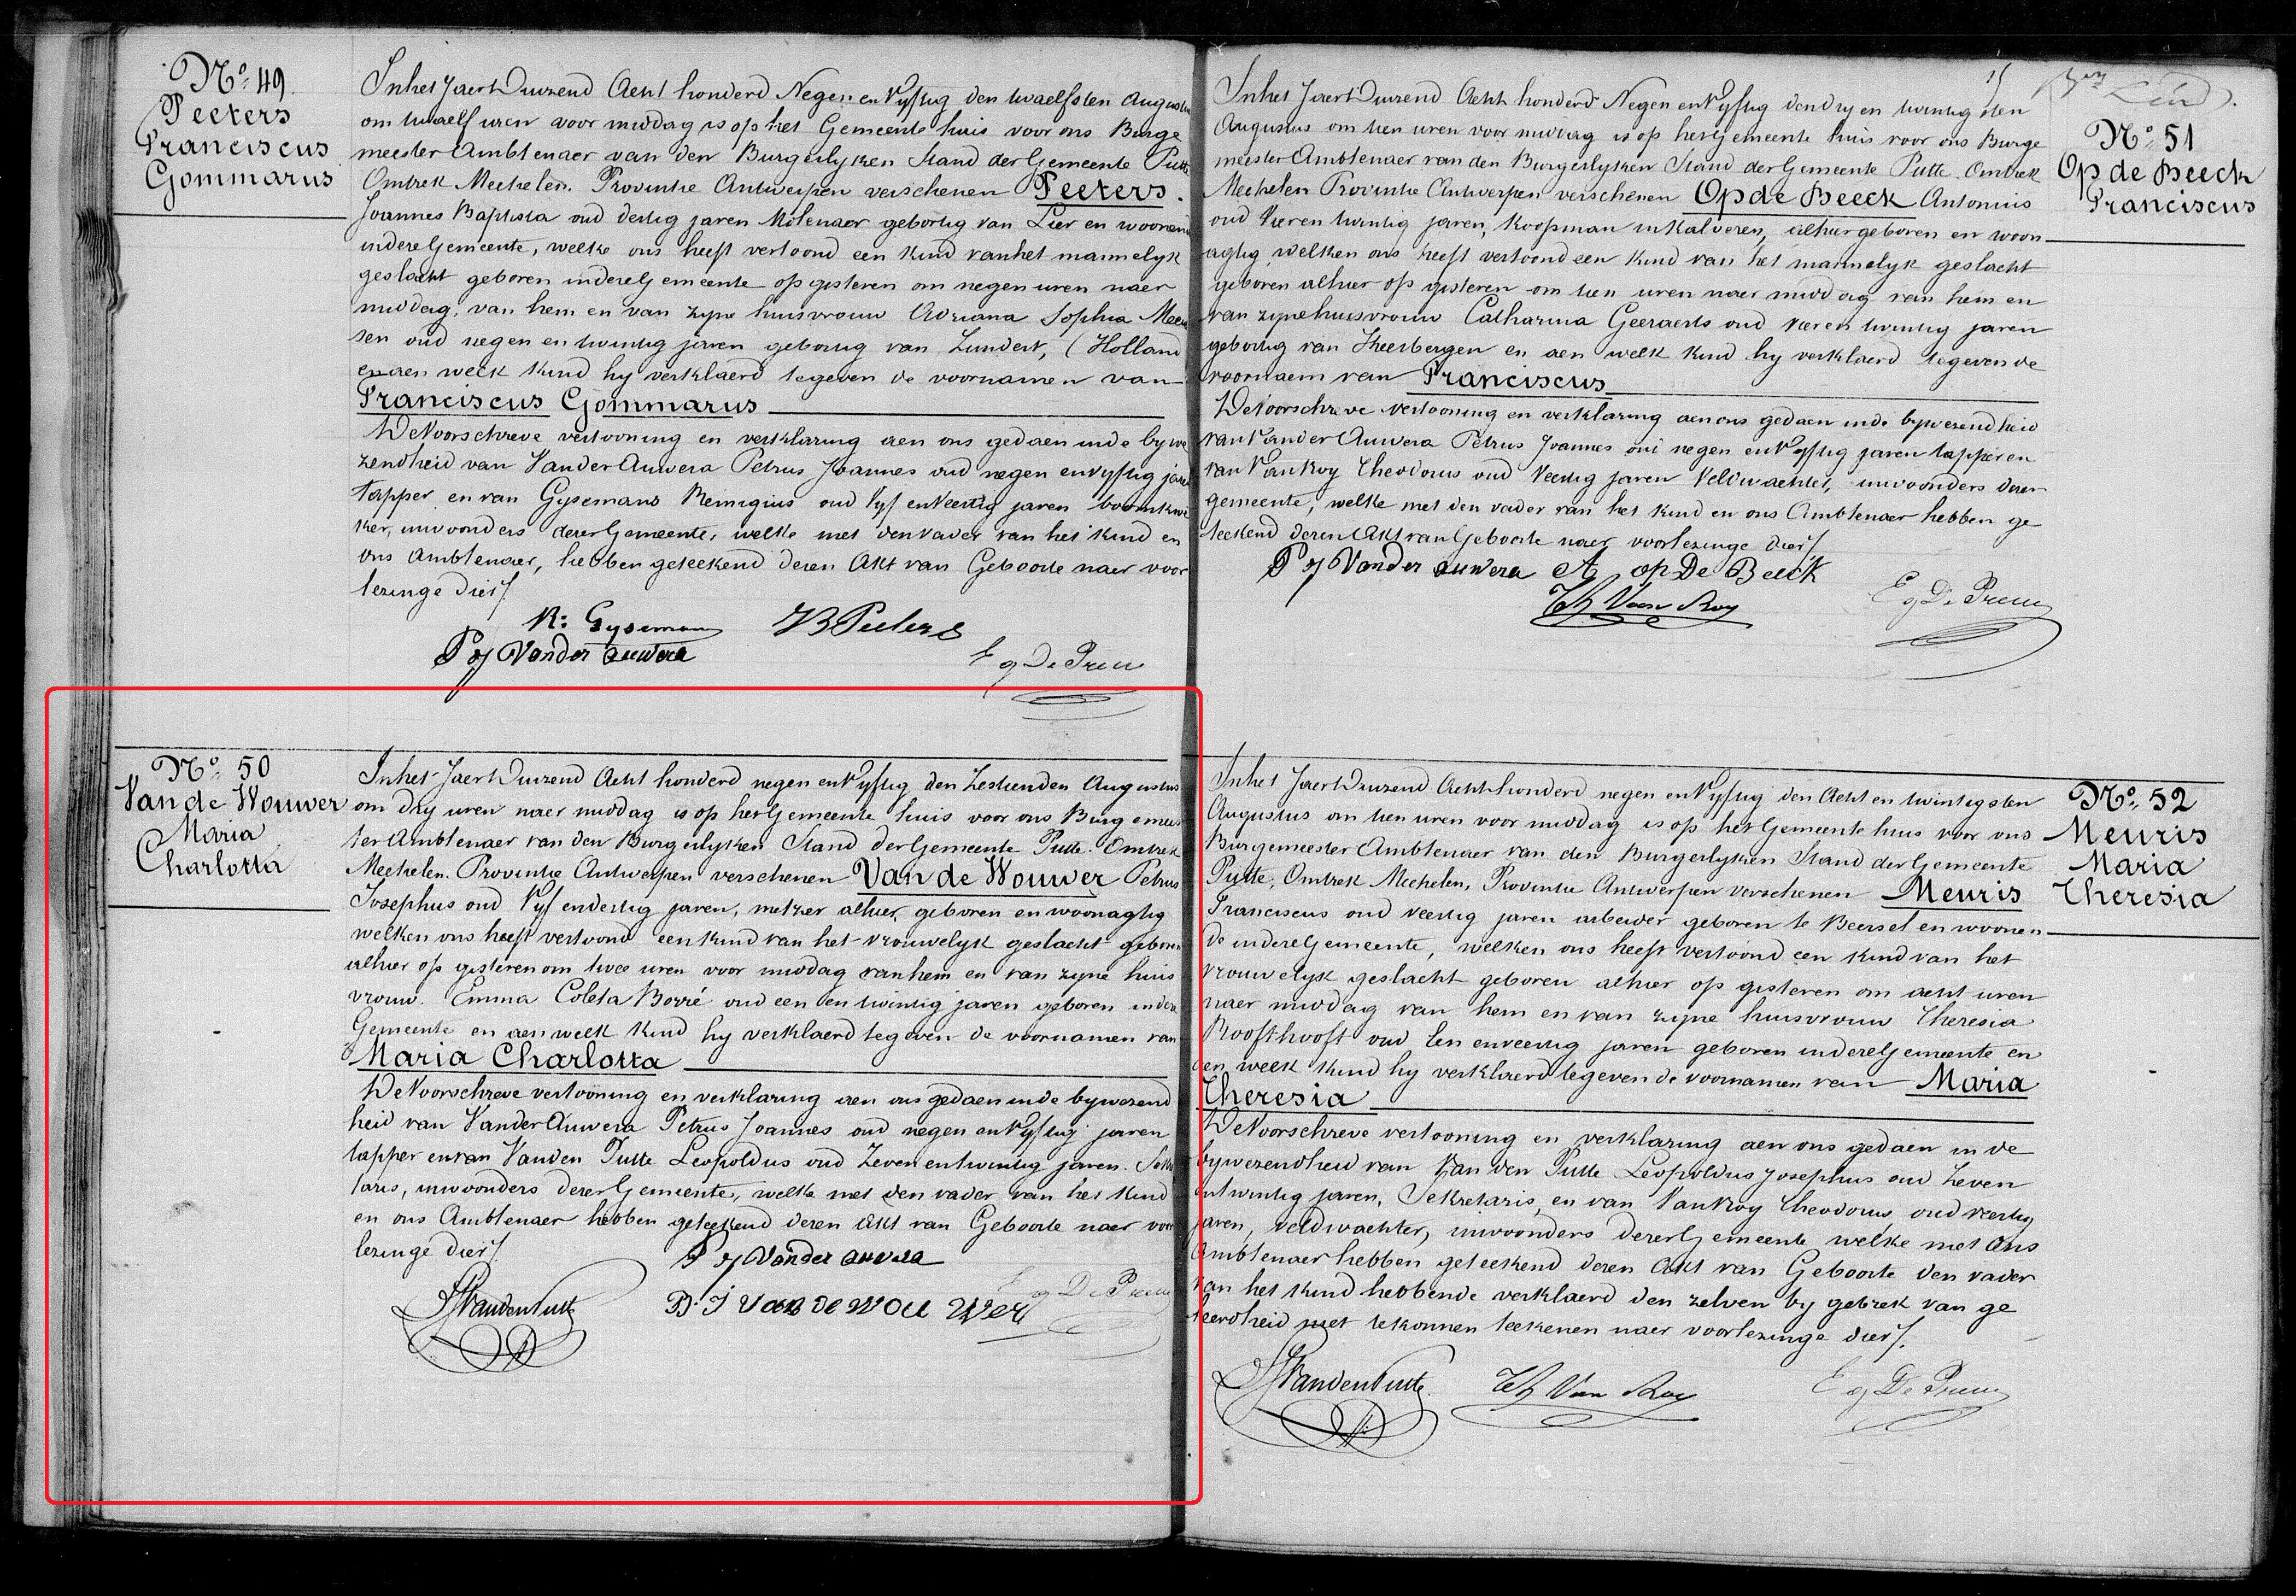 Nº 49.
Peeters
Franciscus
Gommarus
In het Jaer Duizend Acht honderd Negen en Vyftig den twaelfsten Augustus
om twaelf uren voor middag is op het Gemeente huis voor ons Burge
meester Ambtenaer van den Burgerlyken Stand der Gemeente Putte
Omtrek Mechelen. Provintie Antwerpen verschenen Peeters.
Joannes Baptista oud dertig jaren Molenaer geboortig van Lier en woonende
in dere Gemeente, welke ons heeft vertoond een kind van het mannelyk
geslacht geboren in dere Gemeente op gisteren om negen uren naer
middag, van hem en van zyne huisvrouw Adriana Sophia
sen oud negen en twintig jaren geboortig van Zundert, (Holland
en aen welk kind hy verklaerd te geven de voornamen van
Franciscus Gommarus
De Voorschreve vertooning en verklaring aen ons gedaen in de bywe
zendheid van Van der Auwera Petrus Joannes oud negen en vyftig jaren
Tapper en van Gysemans Remigius oud Vyf en Veertig jaren boomkwe
ker, inwoonders derer Gemeente, welke met den vader van het kind en
ons Ambtenaer, hebben geteekend deren Akt van Geboorte naer voor
lezinge dier/.
R: Gysemans JB Peeters
P J Vander auwera
E g De Preu
Nº 50
Van de Wouwer
Maria
Charlotta
In het Jaer Duizend Acht honderd negen en Vyftig den Zestienden Augustus
om dry uren naer middag is op het Gemeente huis voor ons Burgemees
ter Ambtenaer van den Burgerlyken Stand der Gemeente Putte. Omtrek
Mechelen. Provintie Antwerpen verschenen Van de Wouwer Petrus
Josephus oud Vyf en dertig jaren, metzer alhier geboren en woonagtig
welken ons heeft vertoond een kind van het vrouwelyk geslacht geboren
alhier op gisteren om twee uren voor middag van hem en van zyne huis
vrouw. Emma Coleta Borré oud een en twintig jaren geboren in dere
Gemeente en aen welk kind hy verklaerd te geven de voornamen van
Maria Charlotta
De Voorschreve vertooning en verklaring aen ons gedaen in de bywezend
heid van Van der Auwera Petrus Joannes oud negen en Vyftig jaren
tapper en van Van den Putte Leopoldus oud Zeven en twintig jaren. Sekre
taris, inwoonders derer Gemeente, welke met den vader van het kind
en ons Ambtenaer hebben geteekend deren Akt van Geboorte naer voor
lezinge dier/.
P J Vander auwera
Vanden Putte P. J Van de Wouwer E g De Preu
Kind
Nº 51
Op de Beeck
Franciscus
In het Jaer Duizend Acht honderd Negen en Vyftig den dry en twintigsten
Augustus om tien uren voor middag is op het Gemeente huis voor ons Burge
meester Ambtenaer van den Burgerlyken Stand der Gemeente Putte. Omtrek
Mechelen Provintie Antwerpen verschenen Op de Beeck Antonius
oud Vier en twintig jaren, Koopman in Kalveren, alhier geboren en woon
agtig, welken ons heeft vertoond een kind van het mannelyk geslacht
geboren alhier op gisteren om tien uren naer middag van hem en
van zyne huisvrouw Catharina Geeraerts oud Vier en twintig jaren
geboortig van Itheerbergen en aen welk kind hy verklaerd te geven de
voornaem van Franciscus
De Voorschreve vertooning en verklaring aen ons gedaen in de bywezendheid
van Van der Auwera Petrus Joannes oud negen en Vyftig jaren tapper en
van Van Roy Theodorus oud Veertig jaren Veldwachter, inwoonders derer
gemeente, welke met den vader van het kind en ons Ambtenaer hebben ge
teekend deren Akt van Geboorte naer voorlezinge dier/.
P J Vander auwera A op De Beeck
Th Van Roy E g De Preu
Nº 52
Meuris
Maria
Theresia
In het Jaer Duizend Acht honderd negen en Vyftig den Acht en twintigsten
Augustus om tien uren voor middag is op het Gemeente huis voor ons
Burgemeester Ambtenaer van den Burgerlyken Stand der Gemeente
Putte, Omtrek Mechelen, Provintie Antwerpen verschenen Meuris
Franciscus oud veertig jaren arbeider geboren te Beersel en woonen
de in dere Gemeente, welken ons heeft vertoond een kind van het
vrouwelyk geslacht geboren alhier op gisteren om acht uren
naer middag van hem en van zyne huisvrouw Theresia
Roofthooft oud en veertig jaren geboren in dere Gemeente en
aen welk kind hy verklaerd te geven de voornamen van Maria
Theresia
De Voorschreve vertooning en verklaring aen ons gedaen in de
bywezendheid van Van den Putte Leopoldus Josephus oud Zeven
entwintig jaren, Sekretaris, en van Van Roy Theodorus oud veertig
jaren, veldwachter, inwoonders derer Gemeente welke met Ons
Ambtenaer hebben geteekend deren Akt van Geboorte den vader
van het kind hebbende verklaerd den zelven by gebrek van ge
leerdheid niet te konnen teekenen naer voorlezinge dier/.
Vanden Putte Th Van Roy E g De Preu